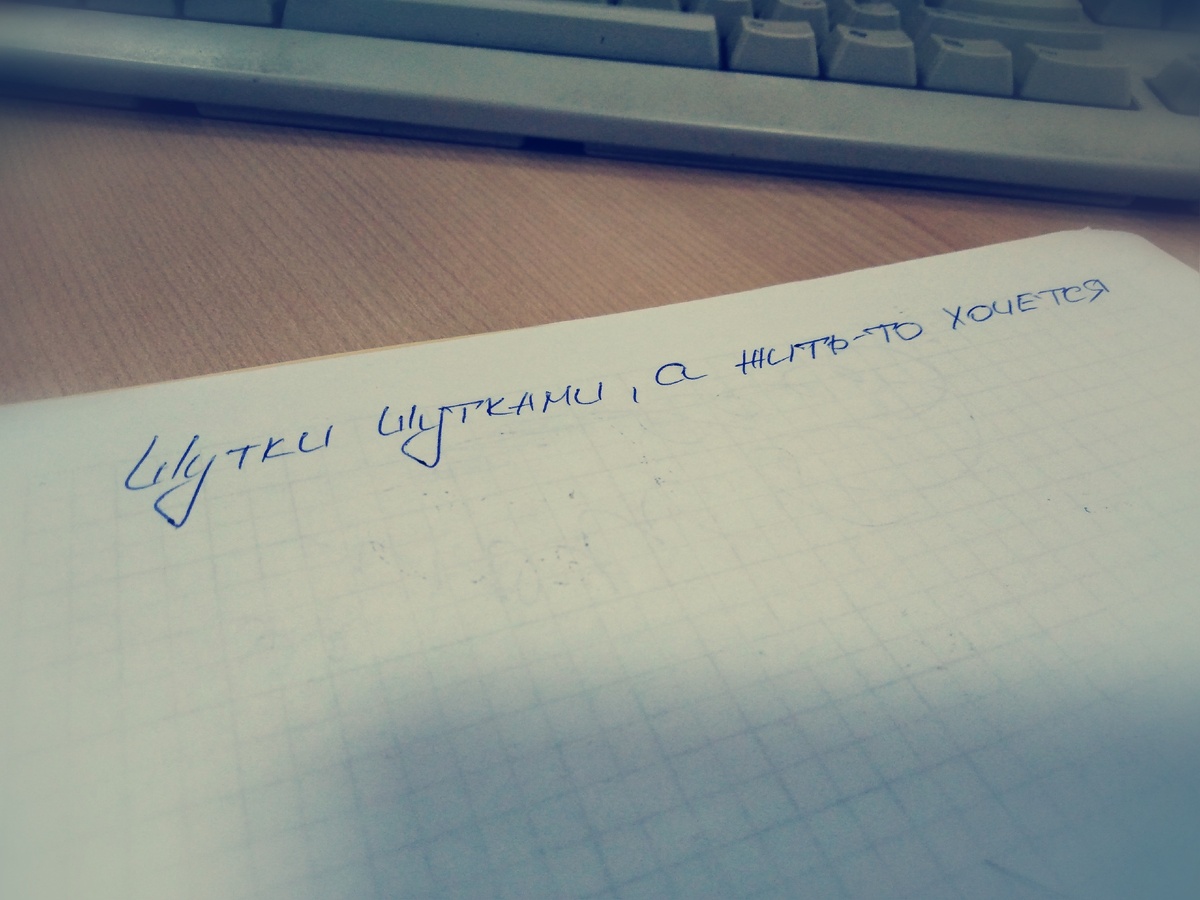 Шутки шутками, а жить-то хочется